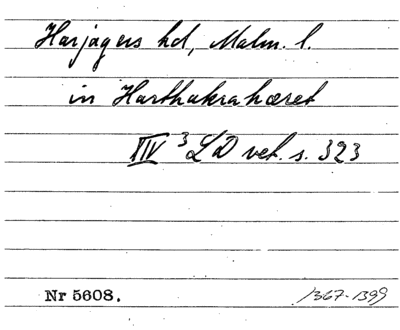 Harjagers hd, Malm. l.
in Harthakrahæret
XIV 3 LD vet. s. 323
Nr 5608. 1367-1399